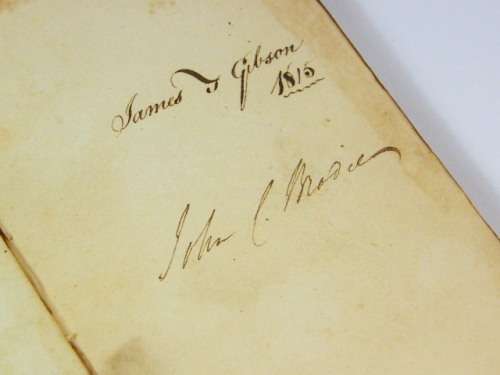 James T Gibson
1815
John C. Brodie